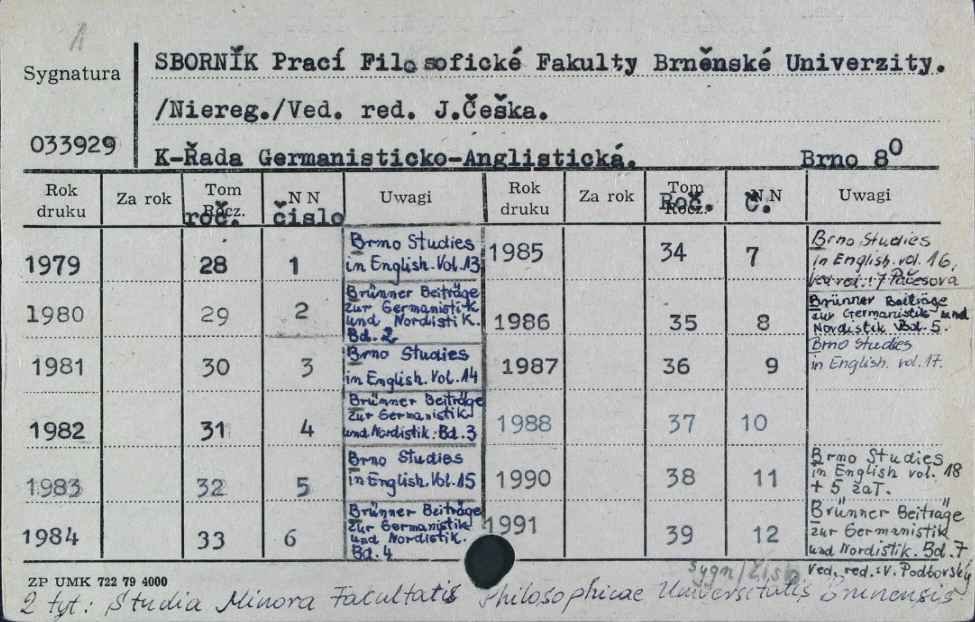 Sygnatura
033929
SBORNÍK Prací Filosofické Fakulty Brněnské Univerzity.
/Niereg./Ved. red. J.Češka.
K-Řada Germanisticko-Anglistická. Brno 8⁰
Rok druku Za rok Tom Rocz. roč. NN čislo Uwagi Rok druku Za rok Tom Rocz. Roč. NN č. Uwagi
1979 28 1 Brno Studies
in English. Vol. 13
1980 29 2 Brünner Beiträge
zur Germanistik
und Nordistik.
Bd. 2
1981 30 3 Brno Studies
in English. Vol. 14
1982 31 4 Brünner Beiträge
zur Germanistik
und Nordistik. Bd. 3
1983 32 5 Brno Studies
in English. Vol. 15
1984 33 6 Brünner Beiträge
zur Germanistik
und Nordistik.
Bd. 4
1985 34 7 Brno Studies
in English. vol. 16.
Pačesova
1986 35 8 Brünner Beiträge
zur Germanistik und
Nordistik Bd. 5.
1987 36 9 Brno Studies
in English. vol. 17.
1988 37 10
1990 38 11 Brno Studies
in English vol. 18
+ 5 zał.
1991 39 12 Brünner Beiträge
zur Germanistik
und Nordistik. Bd. 7
ved. red.: V. Podborský
ZP UMK 722 79 4000
2 tyt.: Studia Minora Facultatis Philosophicae Universitatis Brunensis